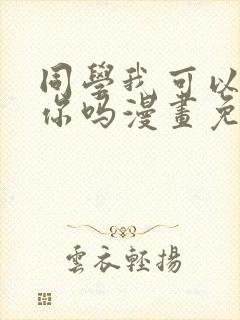 同學我可以
你吗漫畫免
雲衣輕揚